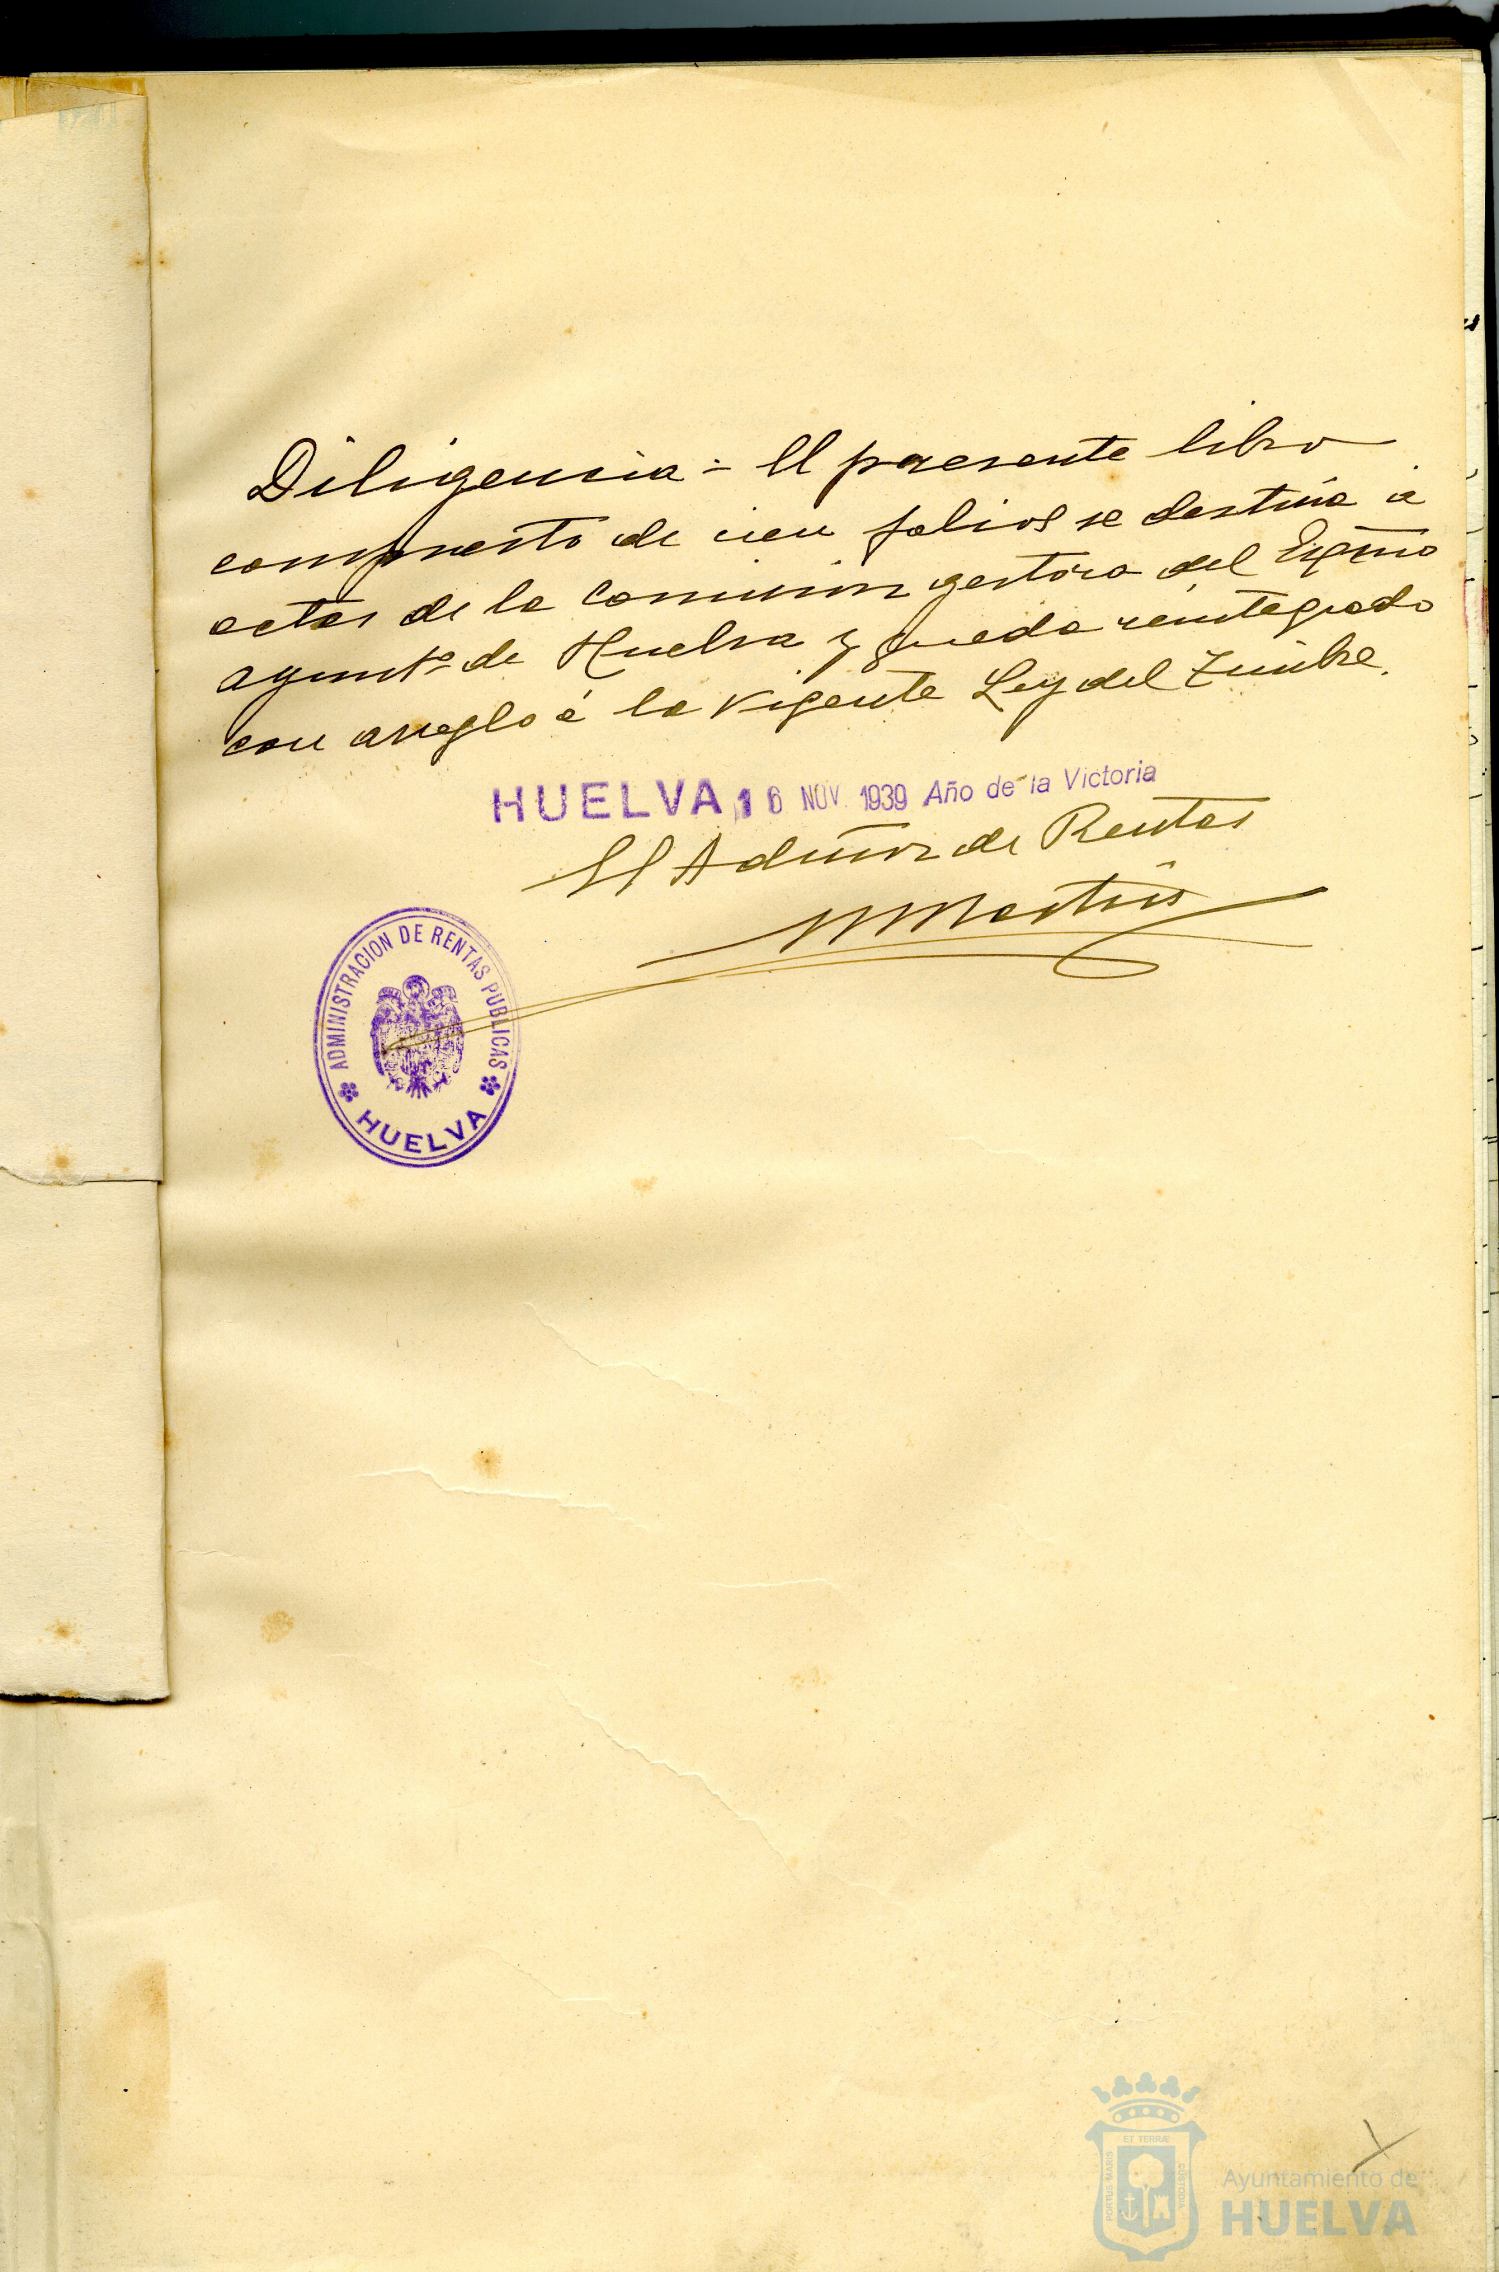 Diligencia = El presente libro
compuesto de cien folios se destina a
actas de la Comision gestora del Exmo
Ayuntº de Huelva y queda reintegrado
con arreglo á la vigente Ley del Timbre.
HUELVA 16 NOV. 1939 Año de la Victoria
El Admor de Rentas
Martin
ADMINISTRACION DE RENTAS PUBLICAS
HUELVA
ET TERRÆ
PORTUS MARIS
CUSTODIA
Ayuntamiento de
HUELVA